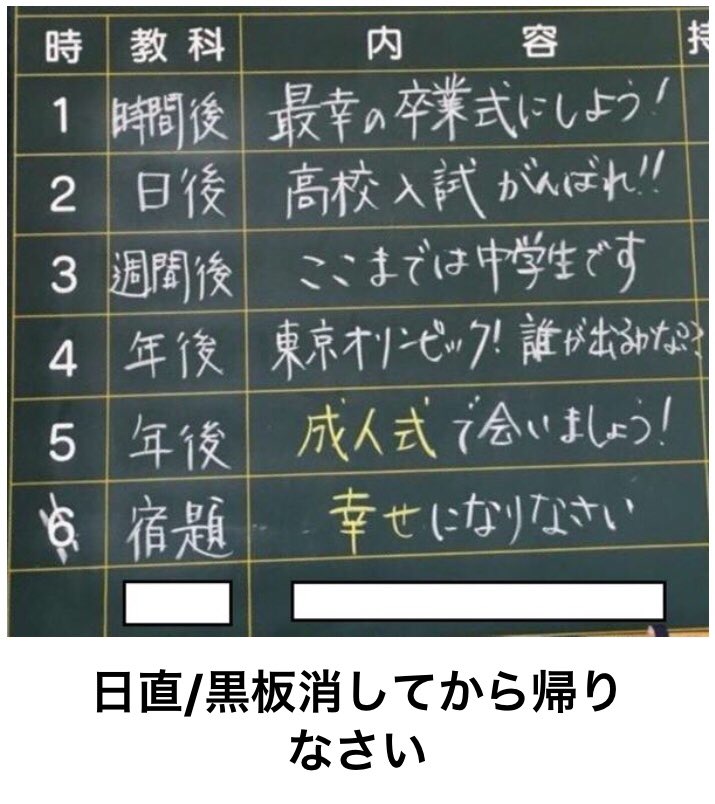 時 教科 内容 持
1 時間後 最幸の卒業式にしよう!
2 日後 高校入試がんばれ!!
3 週間後 ここまでは中学生です
4 年後 東京オリンピック!誰が出るかな??
5 年後 成人式で会いましょう!
6 宿題 幸せになりなさい
日直/黒板消してから帰り
なさい